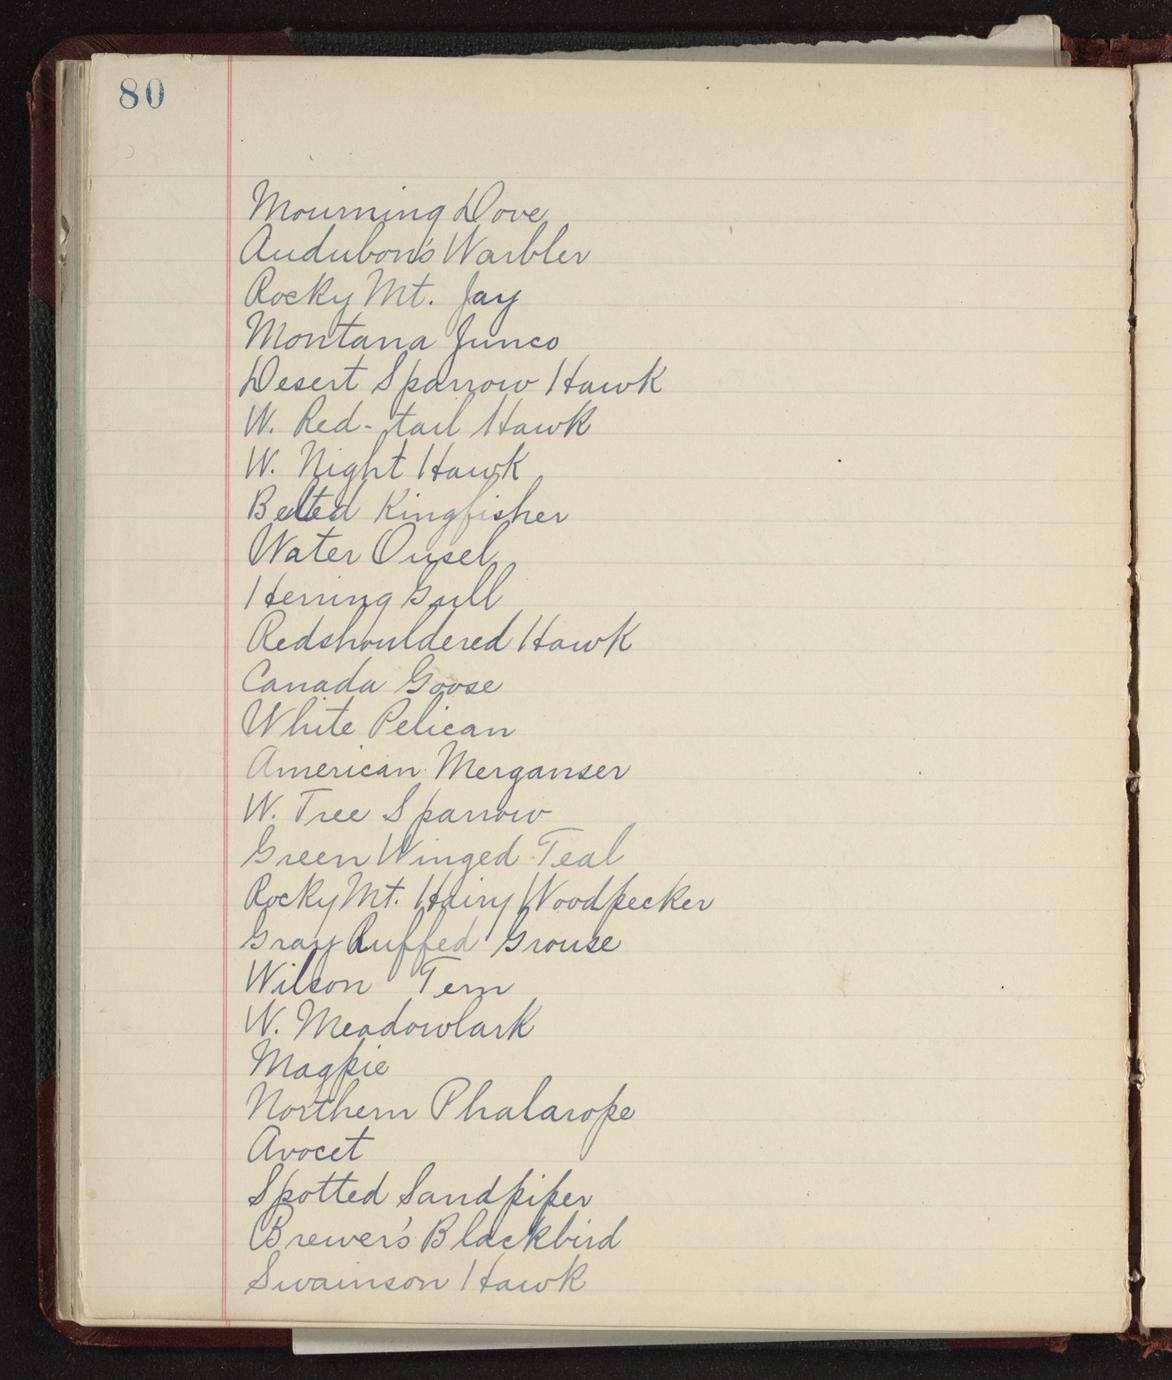 80
Mourning Dove
Audubon's Warbler
Rocky Mt. Jay
Montana Junco
Desert Sparrow Hawk
W. Red-tail Hawk
W. Night Hawk
Belted Kingfisher
Water Ousel
Herring Gull
Redshouldered Hawk
Canada Goose
White Pelican
American Merganser
W. Tree Sparrow
Green Winged Teal
Rocky Mt. Hairy Woodpecker
Gray Ruffed Grouse
Wilson Tern
W. Meadowlark
Magpie
Northern Phalarope
Avocet
Spotted Sandpiper
Brewer's Blackbird
Swainson Hawk